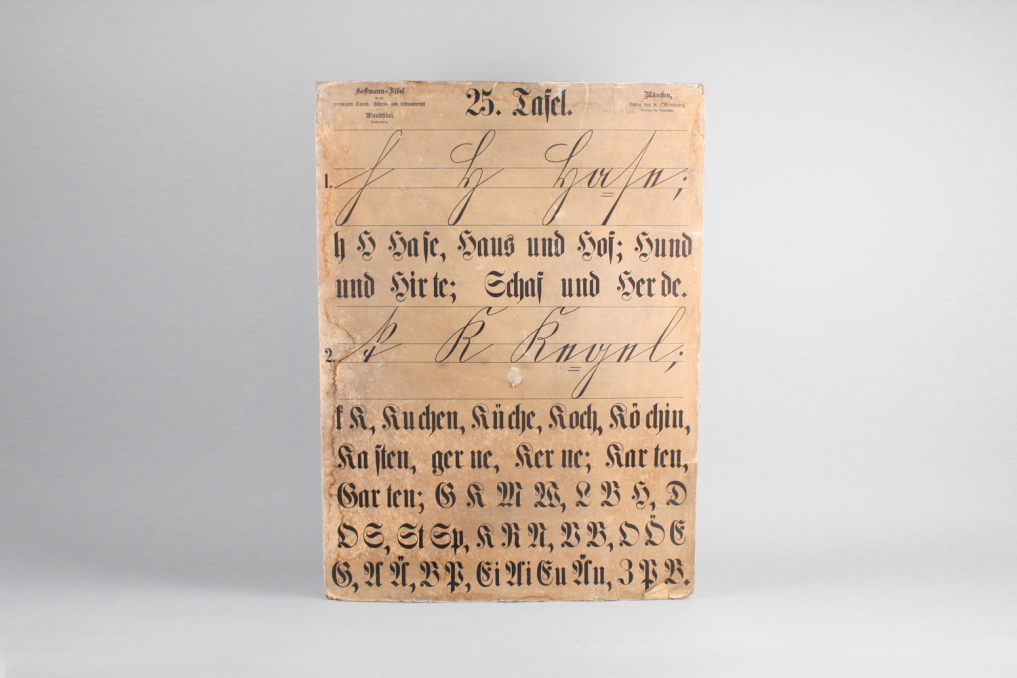 Hoffmann-Fibel
für den
vereinigten Sprech-, Schreib- und Leseunterricht
Wandfibel.
25. Tafel.
München,
Verlag von R. Oldenbourg.
1. h H Hase;
h H Ha se, Haus und Hof; Hund
und Hir te; Schaf und Her de.
2. k K Kegel;
k K, Ku chen, Kü che, Koch, Kö chin,
Ka sten, ger ne, Ker ne; Kar ten,
Gar ten; G K M W, L B H, D
O S, St Sp, K R N, V B, O Ö E
G, A Ä, B P, Ei Ai Eu Äu, Z P B.